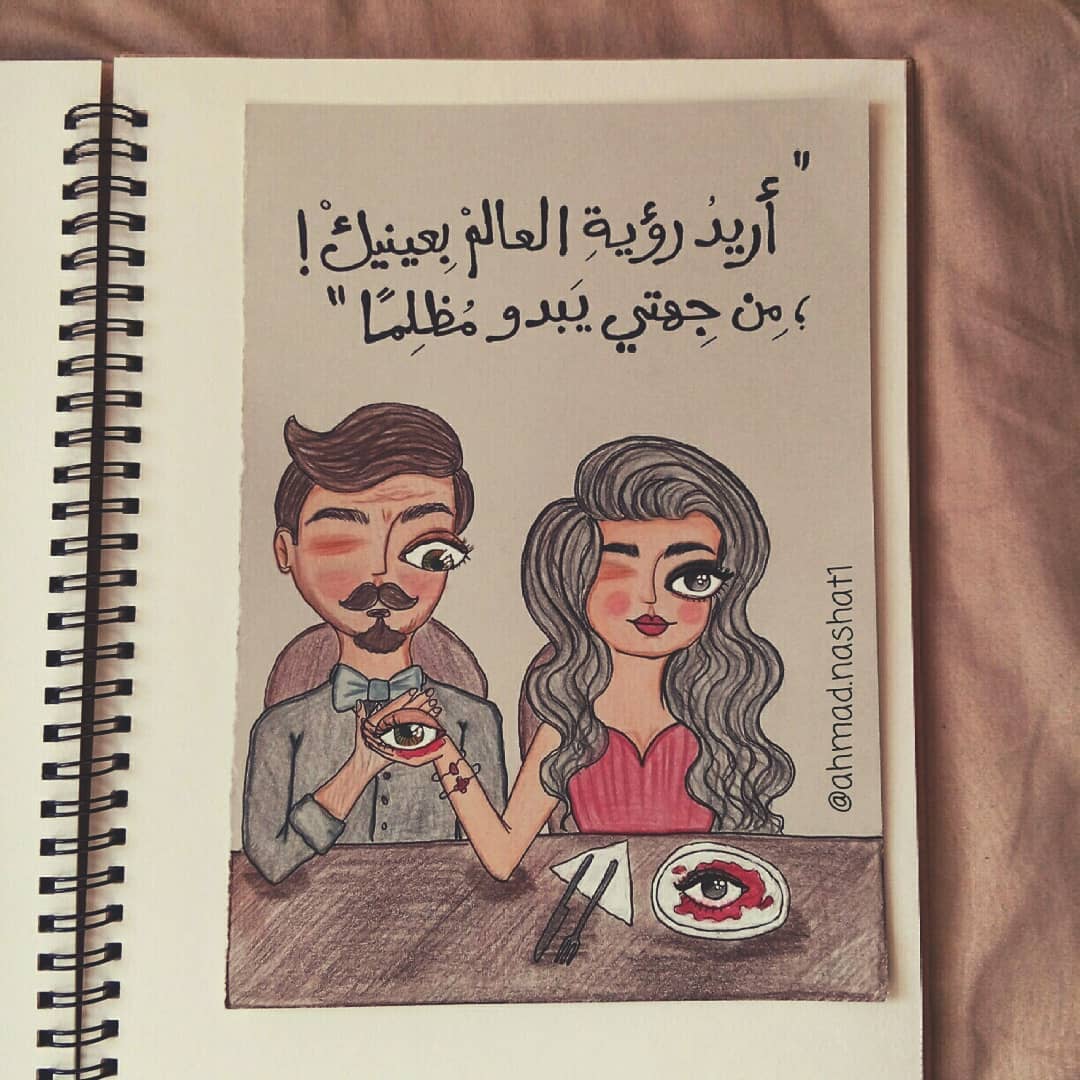 " أريدُ رؤيةِ العالمْ بِعينيكْ !
؛ مِن جِهتي يَبدو مُظلِمًا "
@ahmad.nashat1